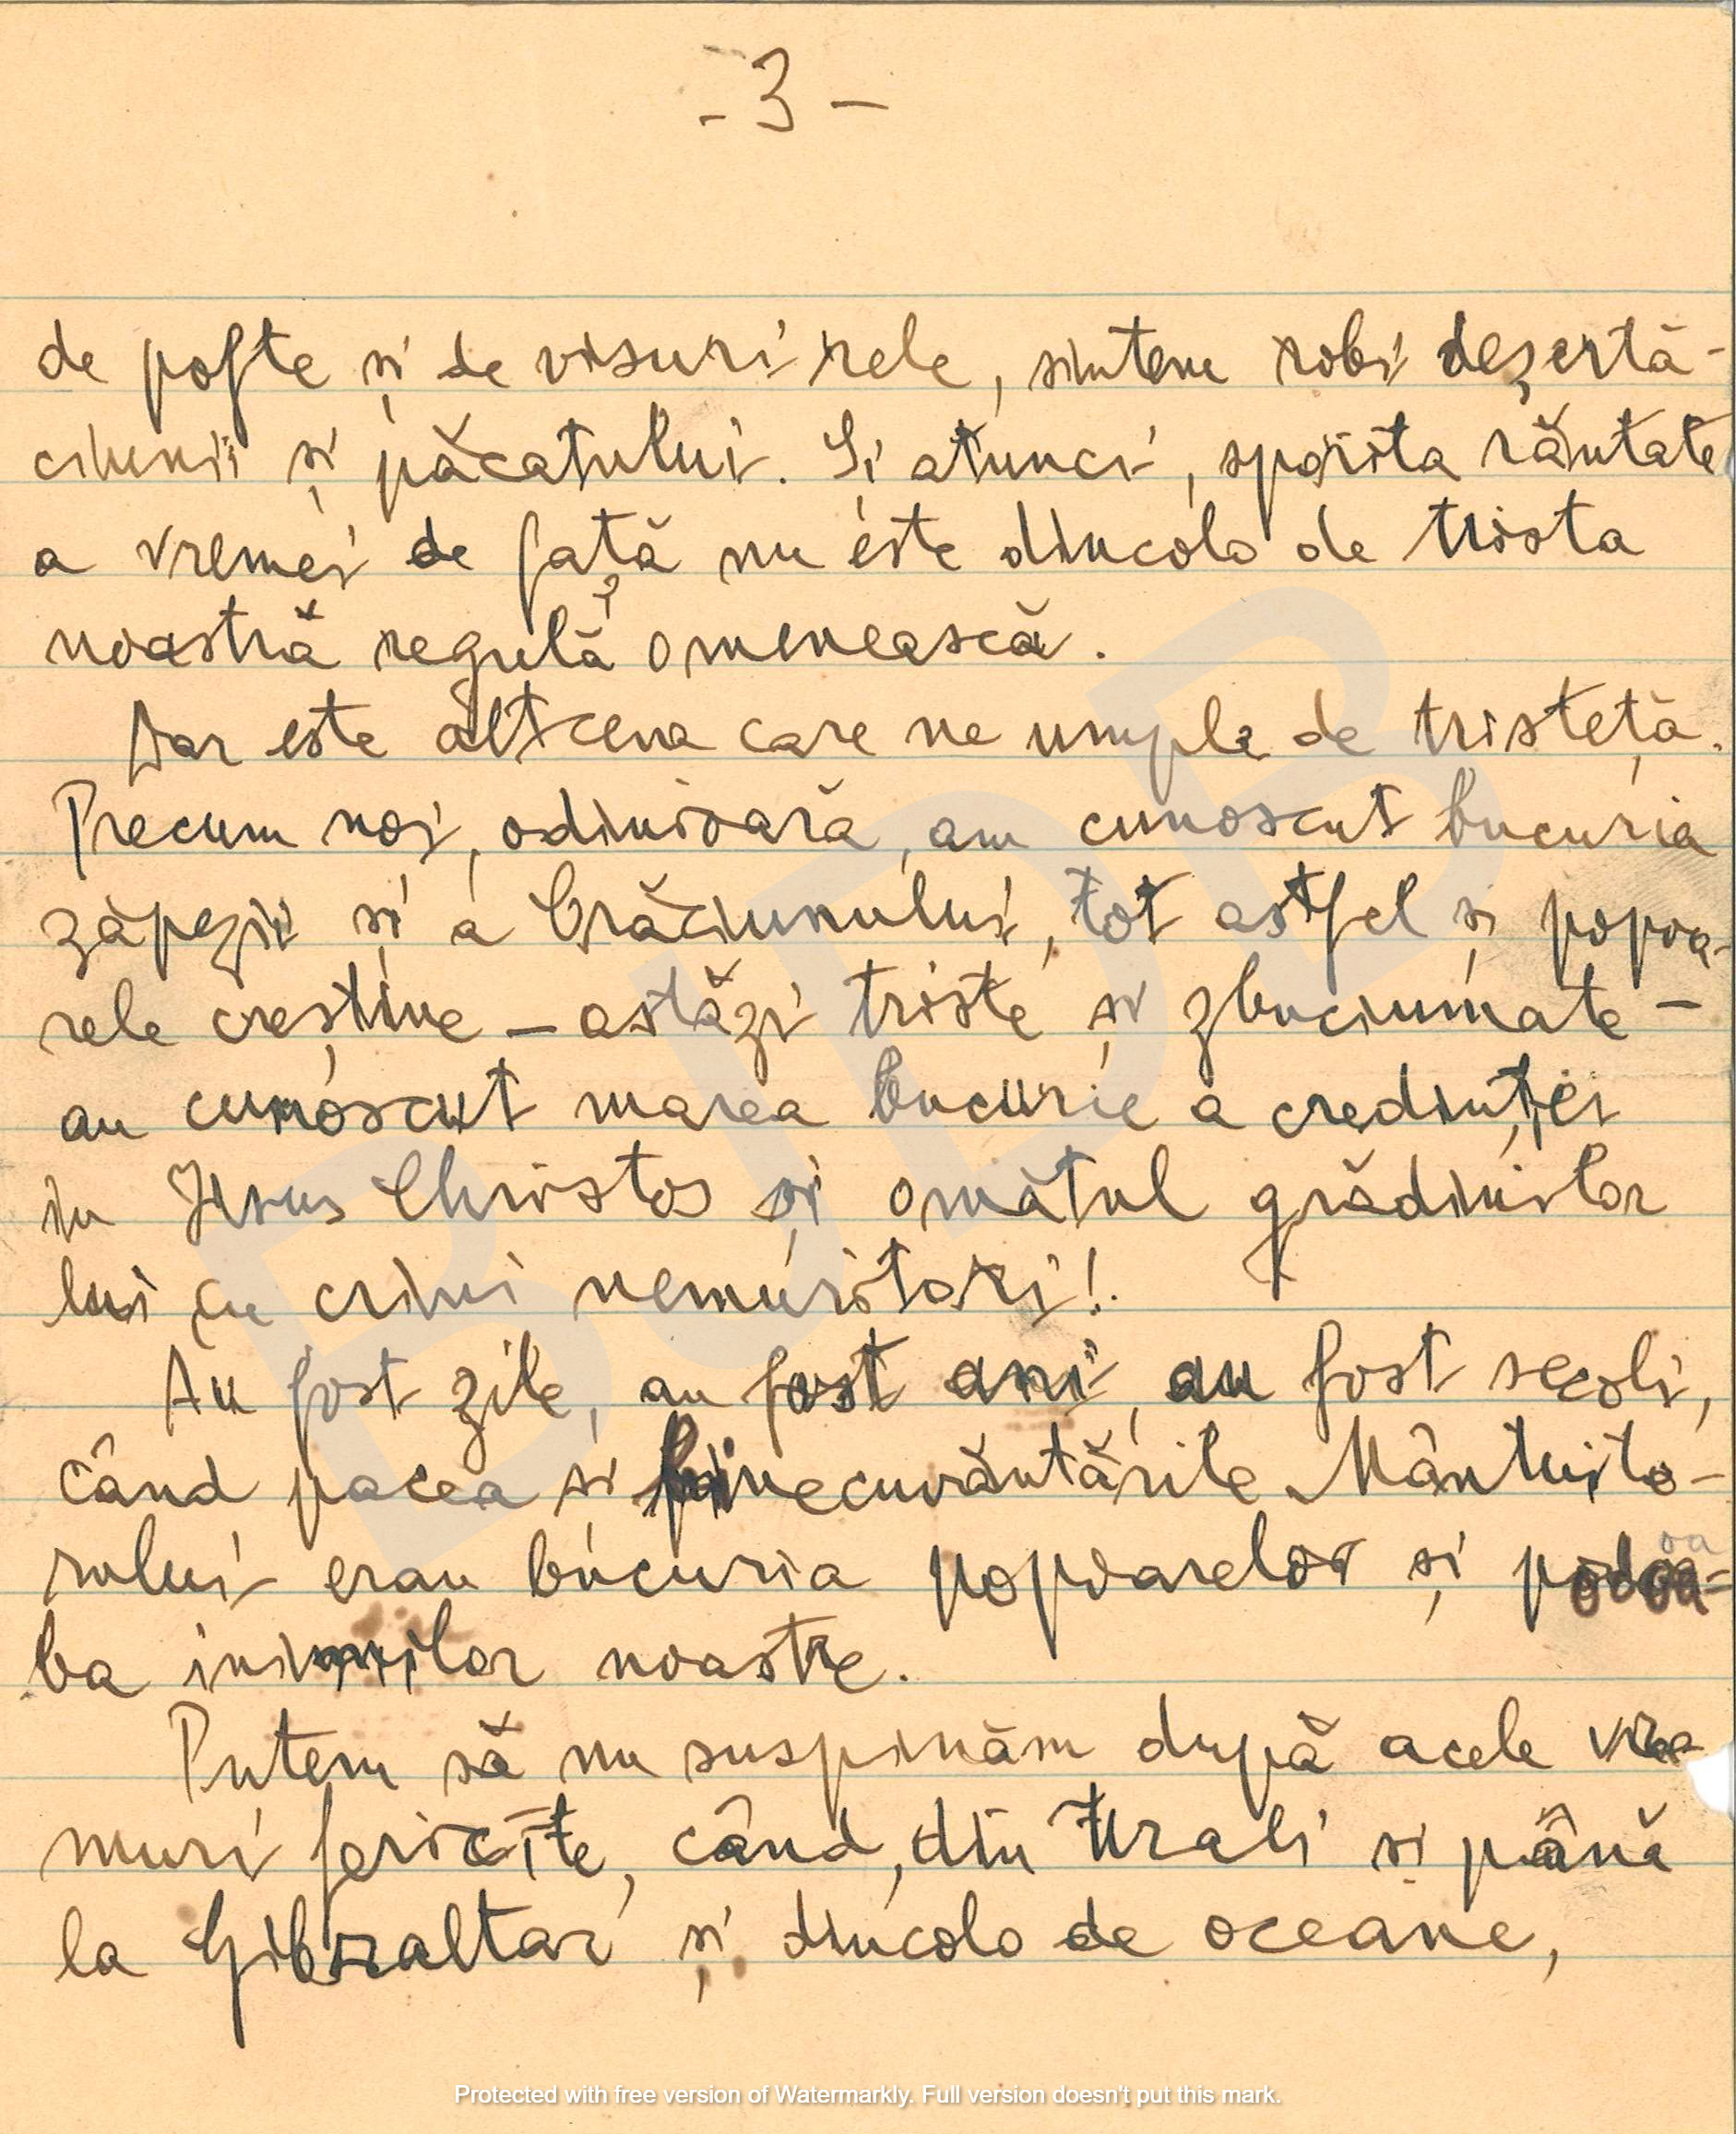 - 3 -
de pofte și de visuri rele, suntem robi deșertă-
ciunii și păcatului. Și atunci, sporita răutate
a vremei de față nu este dincolo de trista
noastră regulă omenească.
Dar este altceva care ne umple de tristeță.
Precum noi, odinioară, am cunoscut bucuria
zăpezii și a Crăciunului, tot astfel și popoa-
rele creștine – astăzi triste și zbuciumate –
au cunoscut marea bucurie a credinței
in Jisus Christos și omătul grădinilor
lui cu crini nemuritori!
Au fost zile, au fost ani, au fost secoli,
când pacea și binecuvântările Mântuito-
rului erau bucuria popoarelor și podoa-
ba inimilor noastre.
Putem să nu suspinăm după acele vre-
muri fericite, când, din Urali și până
la Gibraltar și dincolo de oceane,
Protected with free version of Watermarkly. Full version doesn't put this mark.